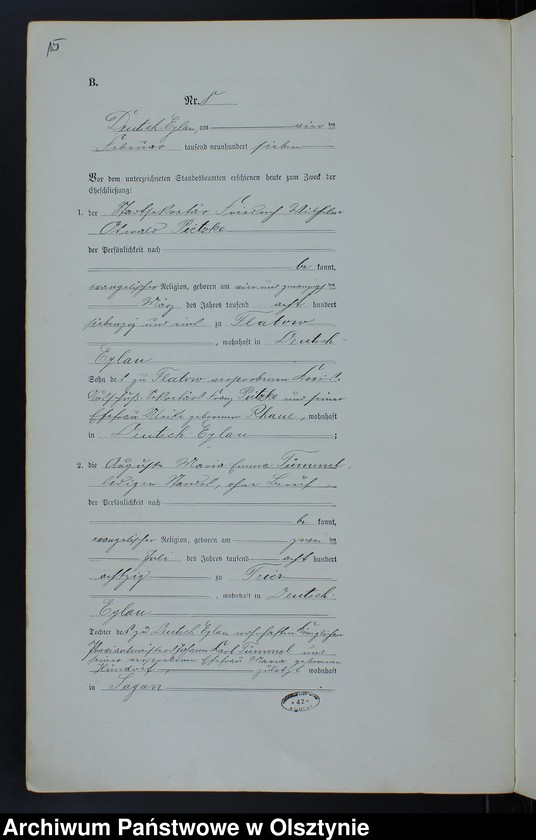 15
B.
Nr. 8
Deutsch-Eylau, am vier ten
Februar tausend neunhundert sieben
Vor dem unterzeichneten Standesbeamten erschienen heute zum Zweck der
Eheschließung:
1. der Stadtsekretär Friedrich Wilhelm
Oswald Pietzke
der Persönlichkeit nach
be kannt,
evangelischer Religion, geboren am vier und zwanzigsten
März des Jahres tausend acht hundert
siebenzig und eins zu Flatow
, wohnhaft in Deutsch-
Eylau
Sohn des zu Flatow verstorbenen Kreis-
Sekretärs Franz Pietzke und seiner
Ehefrau Ulrike geborenen , wohnhaft
in Deutsch-Eylau ;
2. die Auguste Maria Emma Tümmel,
ledigen Standes, ohne Beruf
der Persönlichkeit nach
be kannt,
evangelischer Religion, geboren am ten
Juli des Jahres tausend acht hundert
achtzig zu Trier
, wohnhaft in Deutsch-
Eylau
Tochter des zu Deutsch Eylau verstorbenen Königlichen
Proviantmeisters Karl Tümmel und
seiner verstorbenen Ehefrau Maria geborenen
zuletzt wohnhaft
in Sagan .
42
Archiwum Państwowe w Olsztynie